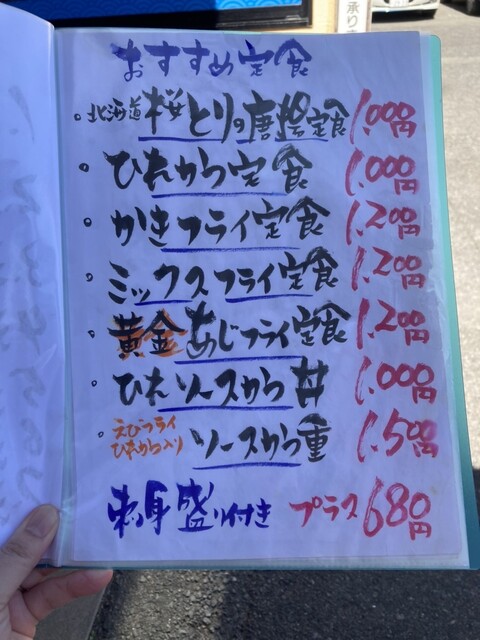 承り
おすすめ定食
。北海道 桜とりの唐揚定食 1.000円
。ひれかつ定食 1.000円
。かきフライ定食 1.200円
。ミックスフライ定食 1.200円
。黄金あじフライ定食 1.200円
。ひれソースかつ丼 1.000円
。えびフライ ひれかつ入り ソースかつ重 1.500円
刺身盛り付き プラス680円